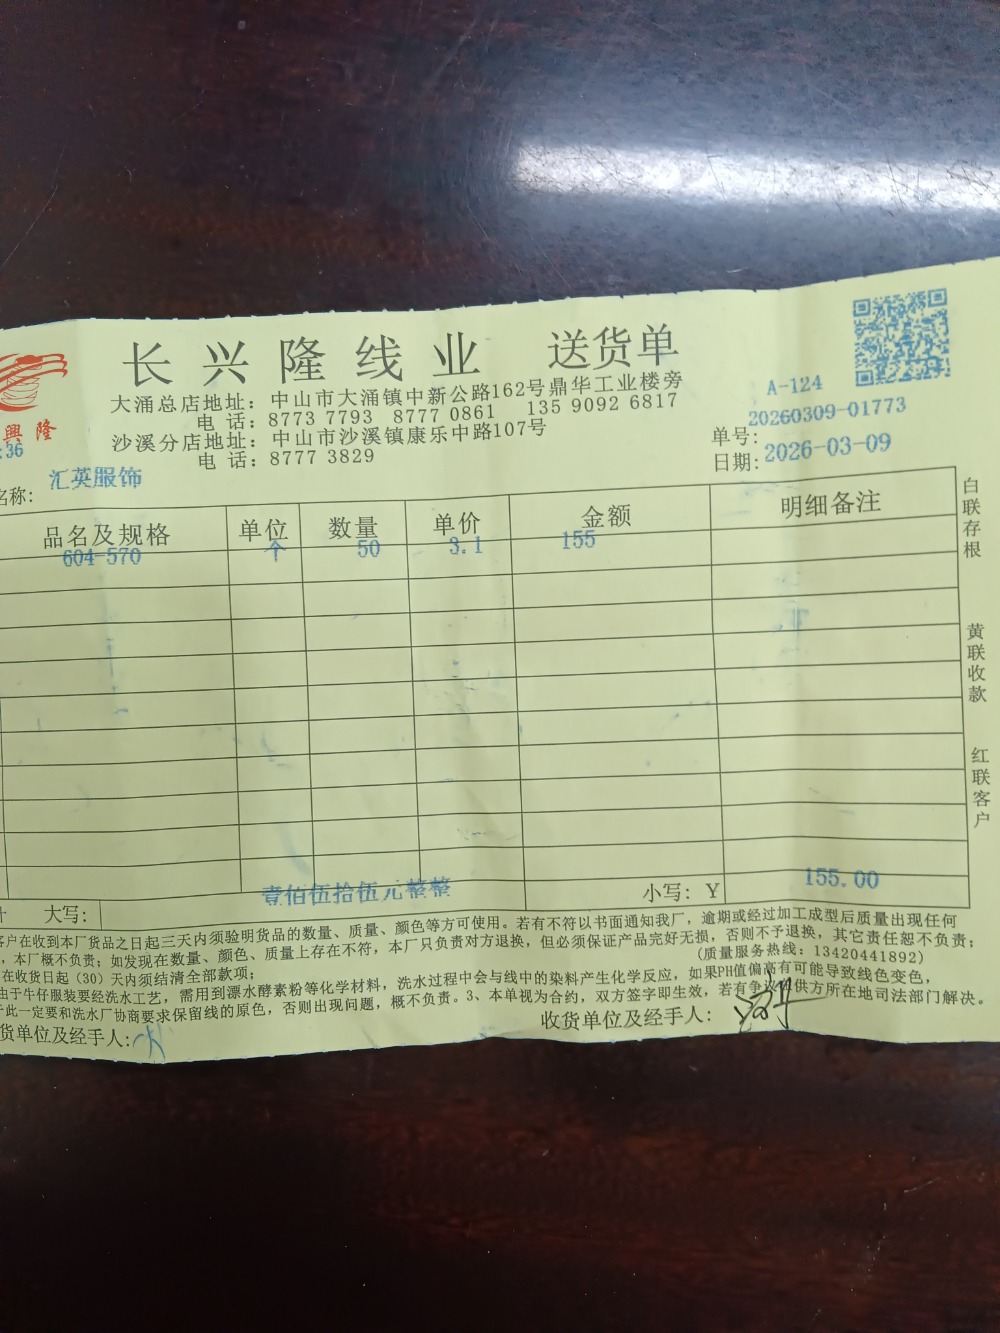 長興隆线业 送货单
興隆
:36
大涌总店地址：中山市大涌镇中新公路162号鼎华工业楼旁
电 话：8773 7793 8777 0861 135 9092 6817
沙溪分店地址：中山市沙溪镇康乐中路107号
电 话：8777 3829
A-124
单号：20260309-01773
日期：2026-03-09
名称：汇英服饰
品名及规格 单位 数量 单价 金额 明细备注
604-570 个 50 3.1 155
大写：壹佰伍拾伍元整整 小写：Y 155.00
客户在收到本厂货品之日起三天内须验明货品的数量、质量、颜色等方可使用。若有不符以书面通知我厂，逾期或经过加工成型后质量出现任何
，本厂概不负责；如发现在数量、颜色、质量上存在不符，本厂只负责对方退换，但必须保证产品完好无损，否则不予退换，其它责任恕不负责；
在收货日起（30）天内须结清全部款项； (质量服务热线：13420441892)
由于牛仔服装要经洗水工艺，需用到漂水酵素粉等化学材料，洗水过程中会与线中的染料产生化学反应，如果PH值偏高有可能导致线色变色，
于此一定要和洗水厂协商要求保留线的原色，否则出现问题，概不负责。3、本单视为合约，双方签字即生效，若有争议供方所在地司法部门解决。
货单位及经手人： 收货单位及经手人：
白联存根
黄联收款
红联客户